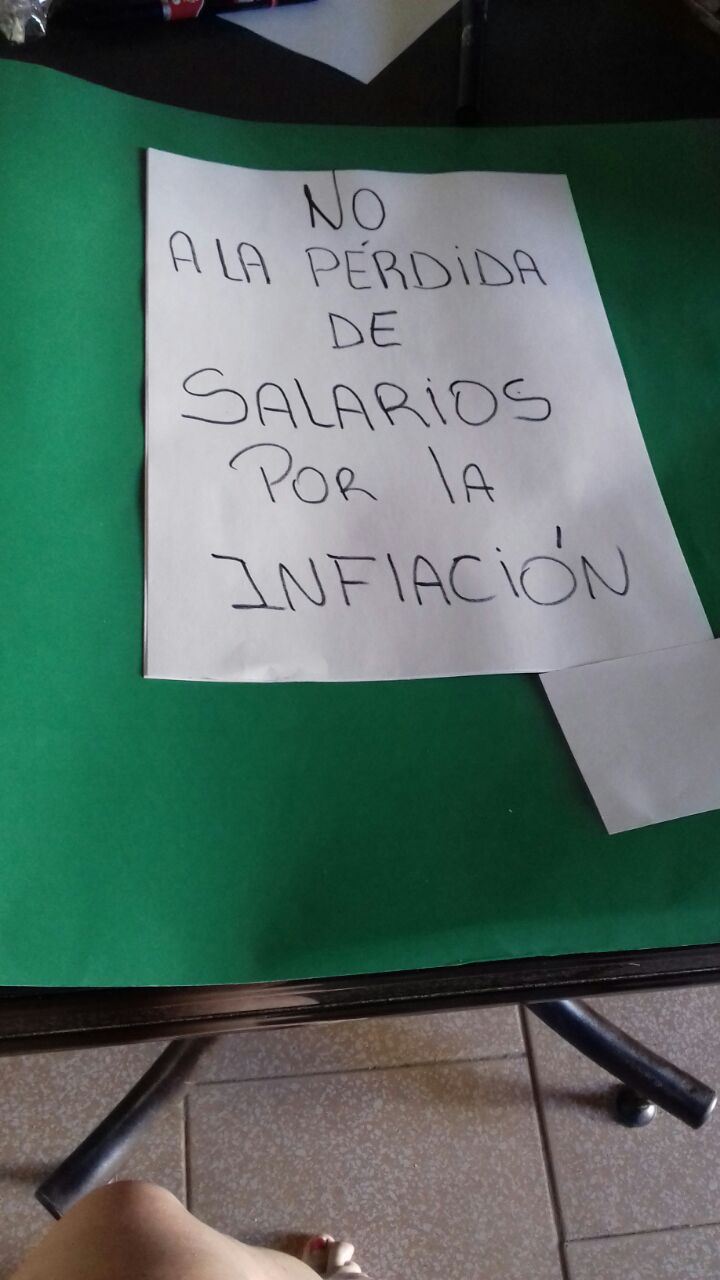 NO
A LA PÉRDIDA
DE
SALARiOS
POR lA
INFlACiÓN